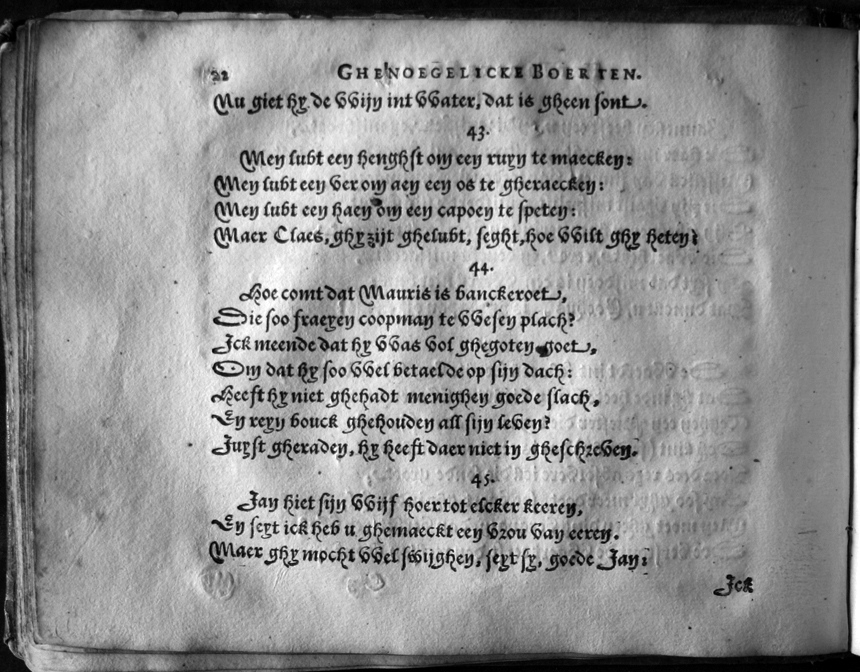 22 GHENOEGELICKE BOERTEN.
Nu giet hy de Wijn int Water, dat is gheen sont.
43.
Men lubt een henghst om een ruyn te maecken:
Men lubt een ver om aen een os te gheraecken:
Men lubt een haen om een capoen te speten:
Maer Claes, ghy zijt ghelubt, seght, hoe Wilt ghy heten?
44.
Hoe comt dat Mauris is banckeroet,
Die soo fraeyen coopman te Wesen plach?
Ick meende dat hy Was vol ghegoten goet,
Om dat hy soo Wel betaelde op sijn dach:
Heeft hy niet ghehadt menighen goede slach,
En reyn bouck ghehouden all sijn leven?
Juyst gheraden, hy heeft daer niet in gheschreven.
45.
Jan hiet sijn Wijf hoer tot elcker keeren,
En seyt ick heb u ghemaeckt een vrou van eeren.
Maer ghy mocht Wel swijghen, seyt sy, goede Jan:
Ick